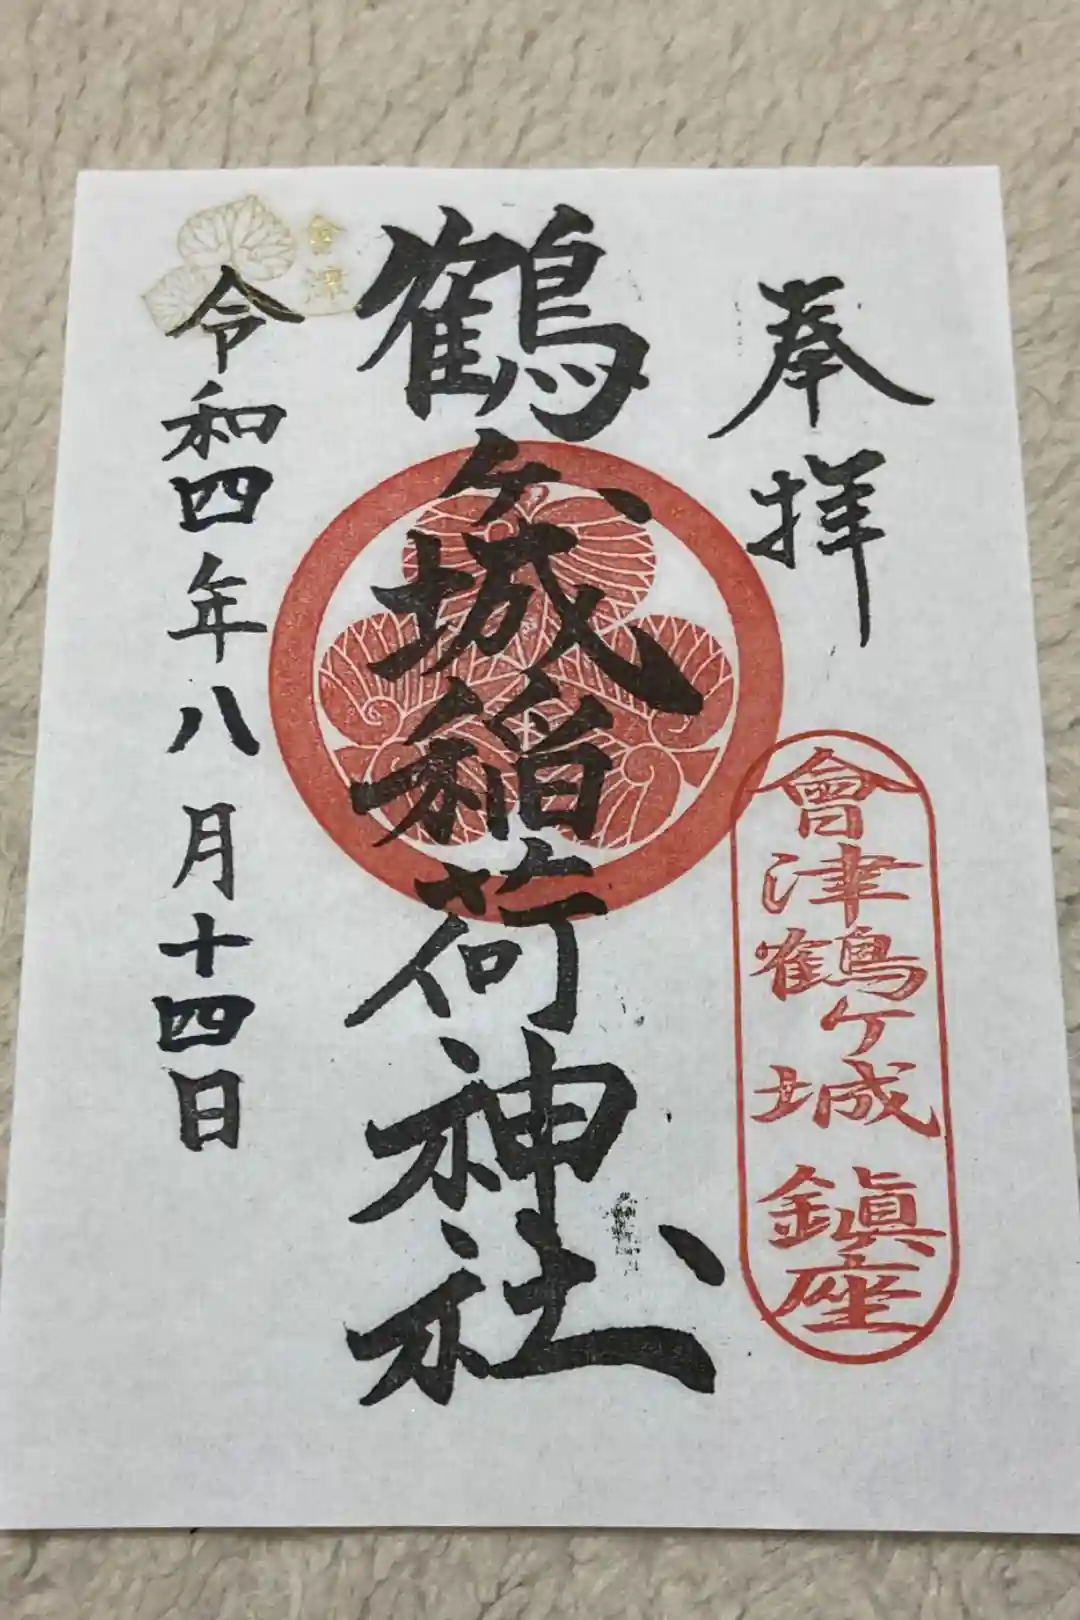 奉拝
會津鶴ヶ城鎮座
鶴ヶ城稲荷神社
會津
令和四年八月十四日